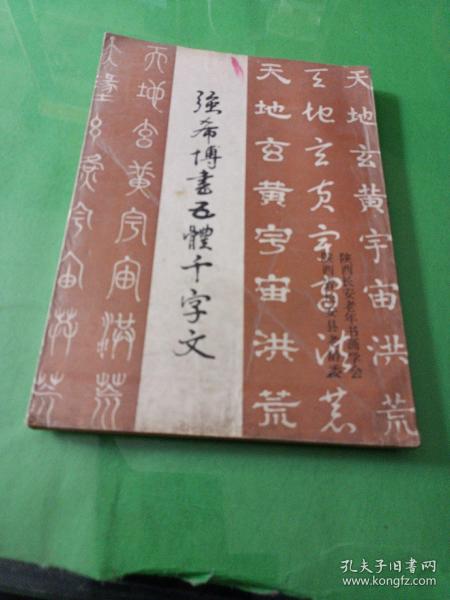 强希博书五體千字文
天地玄黄宇宙洪荒
天地玄黄宇宙洪荒
天地玄黄宇宙洪荒
天地玄黄宇宙洪荒
天地玄黄宇宙洪荒
陕西长安老年书画学会
孔夫子旧书网
www.kongfz.com